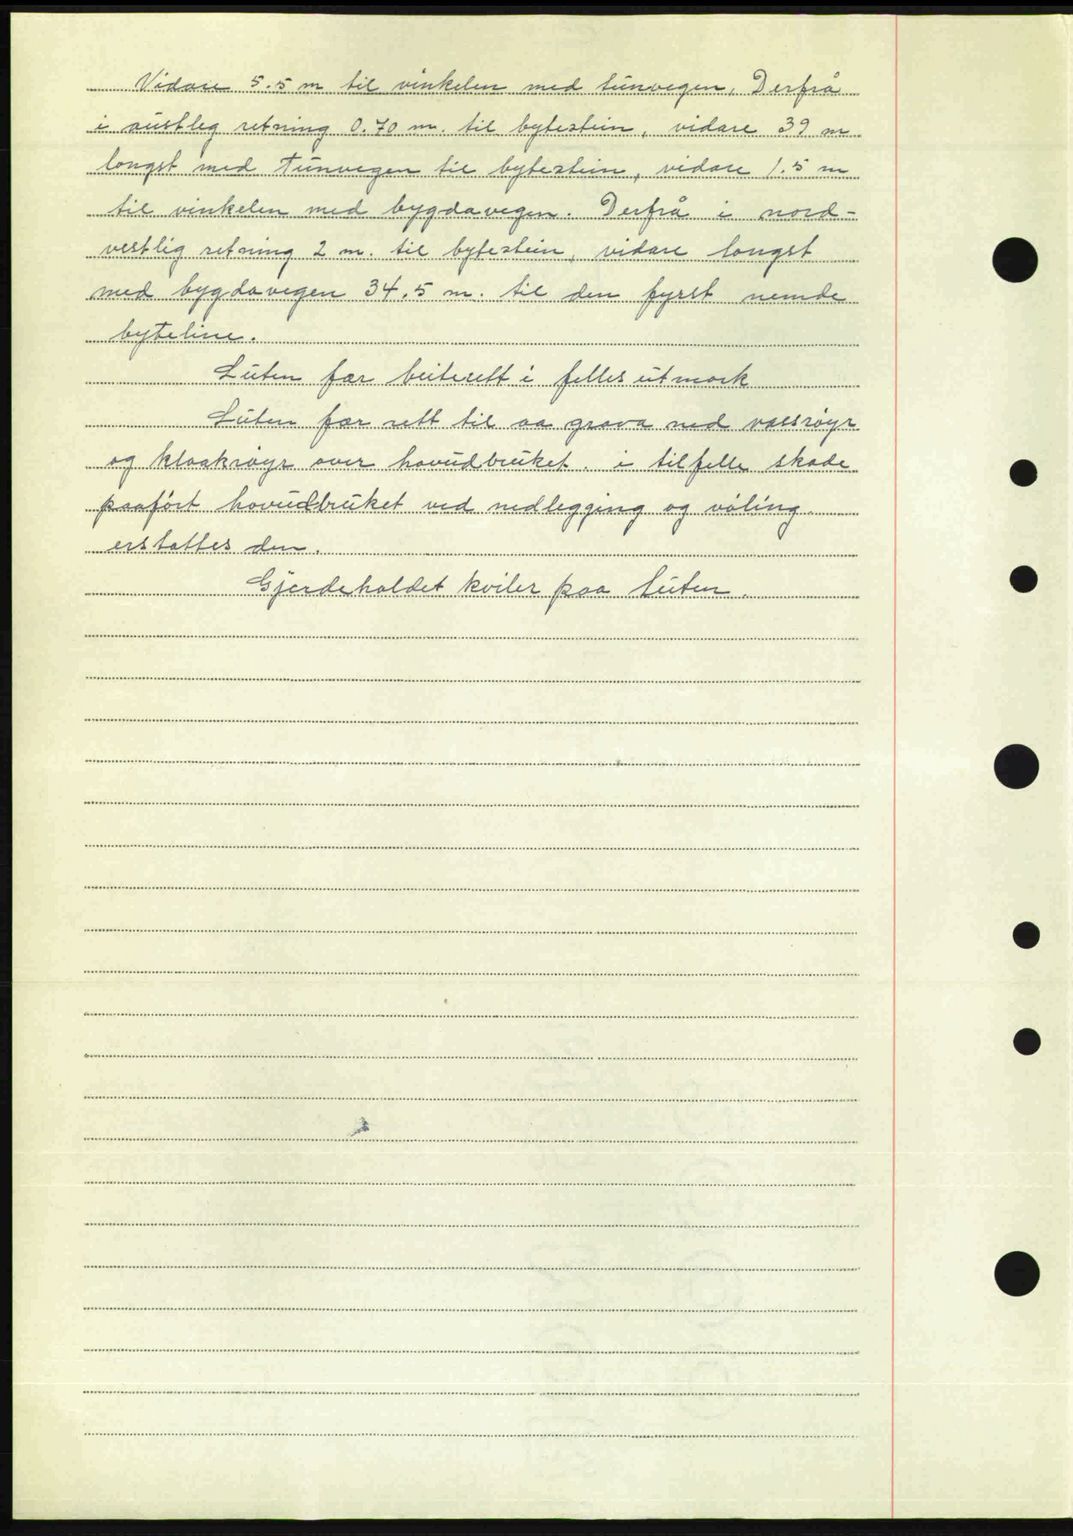 Vidare 5.5 m til vinkelen med tunvegen. Derfrå
i austleg retning 0.70 m. til bytestein, vidare 39 m
longst med tunvegen til bytestein, vidare 1.5 m
til vinkelen med bygdavegen. Derfrå i nord-
vestlig retning 2 m. til bytestein, vidare longst
med bygdavegen 34.5 m. til den fyrst nemde
byteline.
Luten fær beiterett i felles utmark
Luten fær rett til aa grava ned vassrøyr
og kloakrøyr over hovudbruket. i tilfelle skade
paaført hovudbruket ved nedlegging og vøling.
erstattes den.
Gjerdehaldet kviler paa Luten.